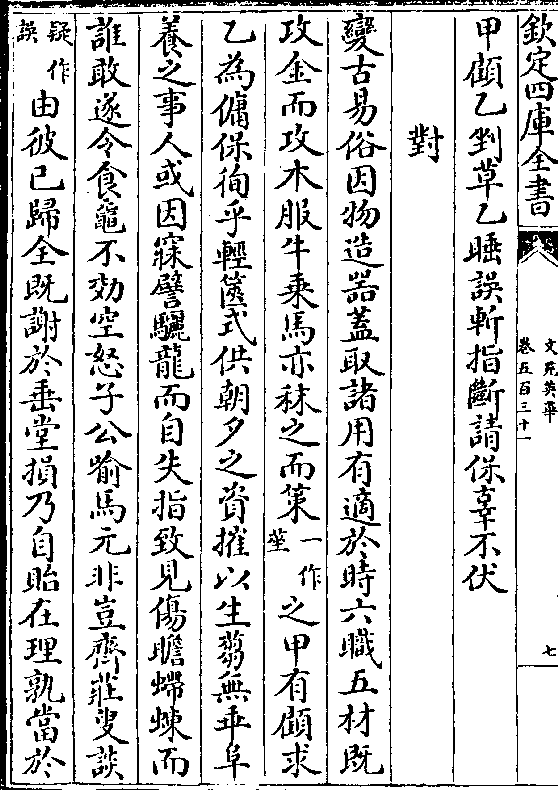 欽定四庫全書
文苑英華
卷五百三十一
七
甲顧乙剉草乙睡誤斬指斷請保辜不伏
對
變古易俗因物造器蓋取諸用有適於時六職五材既
攻金而攻木服牛乗馬亦秣之而䇿一作莝之甲有顧求
乙為傭保徇乎輕篋式供朝夕之資摧以生蒭無乖阜
養之事人或因寐譬驪龍而自失指致見傷瞻蝃蝀而
誰敢遂令食黿不効空怒子公喻馬元非豈齊莊叟談
疑作誤由彼已歸全既謝於垂堂損乃自貽在理孰當於